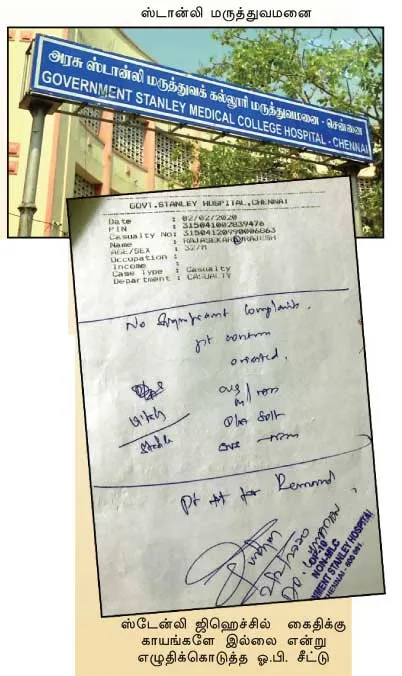 ஸ்டான்லி மருத்துவமனை
அரசு ஸ்டான்லி மருத்துவக் கல்லூரி மருத்துவமனை - சென்னை
GOVERNMENT STANLEY MEDICAL COLLEGE HOSPITAL - CHENNAI
GOVT.STANLEY HOSPITAL,CHENNAI
Date : 02/02/2020
PIN : 315041002839476
Casualty No: 31504120990006863
Name : RAJASEKAR RAJESH
AGE/SEX : 32/M
Occupation :
Income :
Case Type : Casualty
Department : CASUALTY
No Significant Complaints.
pt conscious
oriented.
Vitals
Stable
CVS
P/A Soft
CNS
Pt fit for Remand
NON-MLC
GOVERNMENT STANLEY HOSPITAL
CHENNAI - 600 001
ஸ்டேன்லி ஜிஹெச்சில் கைதிக்கு
காயங்களே இல்லை என்று
எழுதிக்கொடுத்த ஓ.பி. சீட்டு